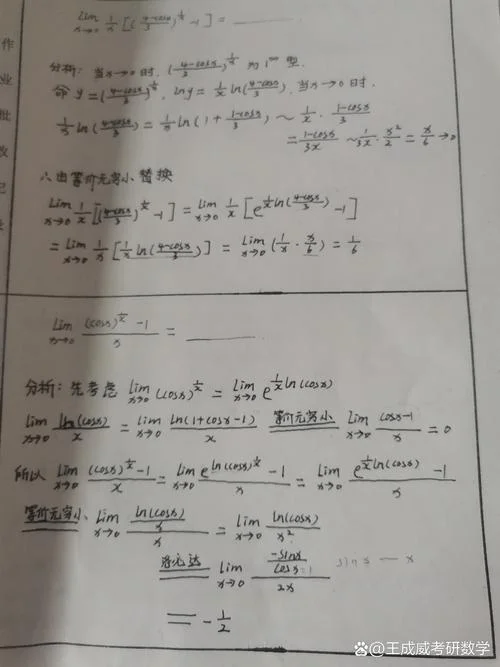 lim x→0 1/x [((4-cosx)/3)^(1/x) -1] = ______
分析：当x→0时，((4-cosx)/3)^(1/x) 为 1^∞ 型.
命 y = ((4-cosx)/3)^(1/x), lny = 1/x ln((4-cosx)/3), 当x→0时.
1/x ln((4-cosx)/3) = 1/x ln(1+(1-cosx)/3) ~ 1/x · (1-cosx)/3
= (1-cosx)/3x ~ 1/3x · x²/2 = x/6 → 0
∴由等价无穷小替换
lim x→0 1/x [((4-cosx)/3)^(1/x) -1] = lim x→0 1/x [e^(1/x ln((4-cosx)/3)) -1]
= lim x→0 1/x [1/x ln((4-cosx)/3)] = lim x→0 (1/x · x/6) = 1/6
lim x→0 ((cosx)^(1/x) -1)/x = ______
分析：先考虑 lim x→0 (cosx)^(1/x) = lim x→0 e^(1/x ln(cosx))
lim x→0 ln(cosx)/x = lim x→0 ln(1+cosx-1)/x 等价无穷小 lim x→0 (cosx-1)/x = 0
所以 lim x→0 ((cosx)^(1/x) -1)/x = lim x→0 (e^(ln(cosx)^(1/x)) -1)/x = lim x→0 (e^(1/x ln(cosx)) -1)/x
等价无穷小 lim x→0 (ln(cosx)/x)/x = lim x→0 ln(cosx)/x²
洛必达 lim x→0 (-sinx/cosx)/2x sinx — x
= -1/2
作
业
批
改
记
王成威考研数学